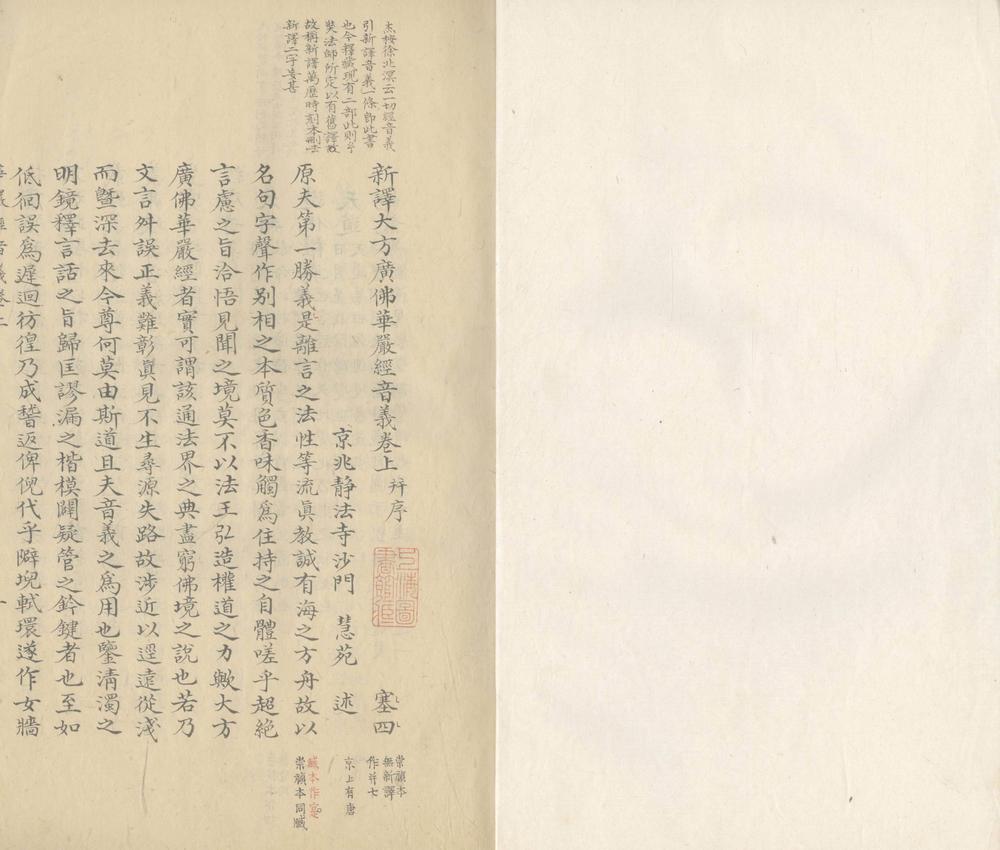 太橅徐北溟云一切經音義
引新譯音義一條即此書
也今釋藏現有二部此則
奘法師所定以有舊譯故
故稱新譯萬歷時刻本刪去
新譯二字妄甚
新譯大方廣佛華嚴經音義卷上 并序
塞四
京兆靜法寺沙門 慧苑 述
原夫第一勝義是離言之法性等流眞教誠有海之方舟故以
名句字聲作別相之本質色香味觸爲住持之自體嗟乎超絶
言慮之旨洽悟見聞之境莫不以法王弘造權道之力歟大方
廣佛華嚴經者實可謂該通法界之典盡窮佛境之說也若乃
文言舛誤正義難彰眞見不生尋源失路故涉近以逕遠從淺
而曁深去來今尊何莫由斯道且夫音義之爲用也鑒清濁之
明鏡釋言詁之旨歸匡謬漏之楷模闢疑管之鈐鍵者也至如
低徊誤爲遲迴彷徨乃成稽返俾倪代乎隦堄軾環遂作女牆
崇禎本
無新譯
作并七
京上有唐
藏本作寔
崇禎本同藏